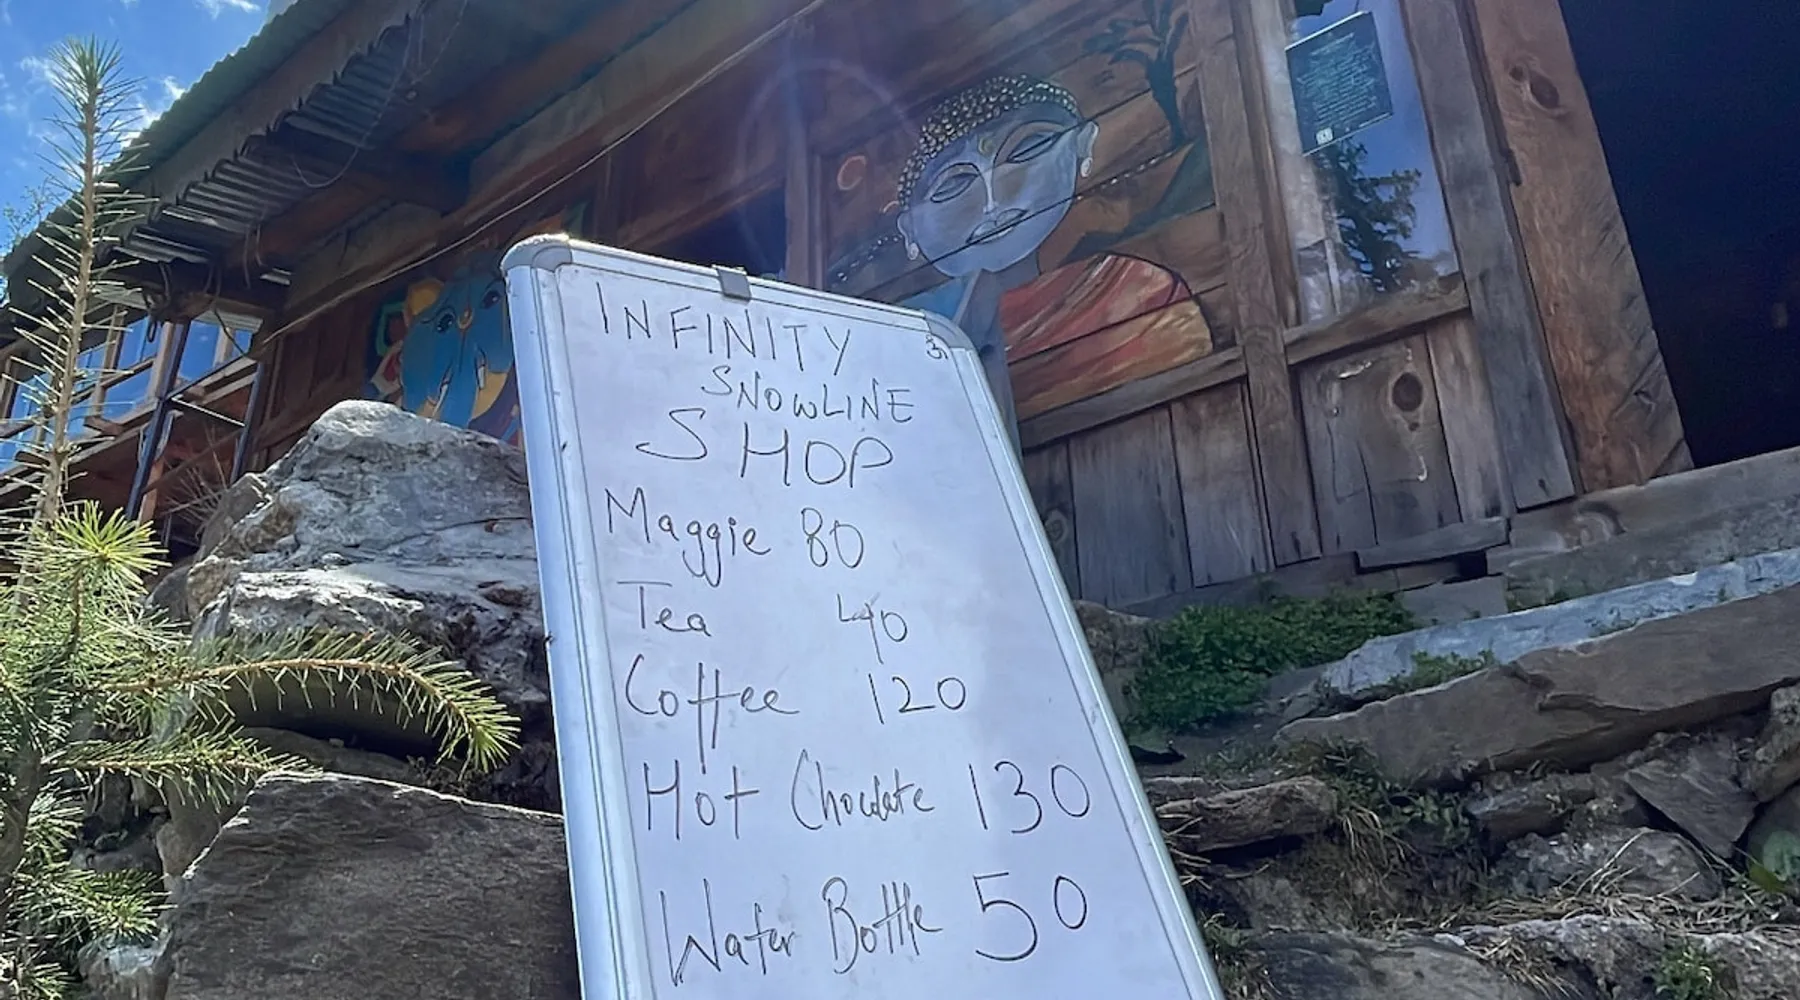 ॐ
INFINITY
SNOWLINE
SHOP
Maggie 80
Tea 40
Coffee 120
Hot Chocolate 130
Water Bottle 50